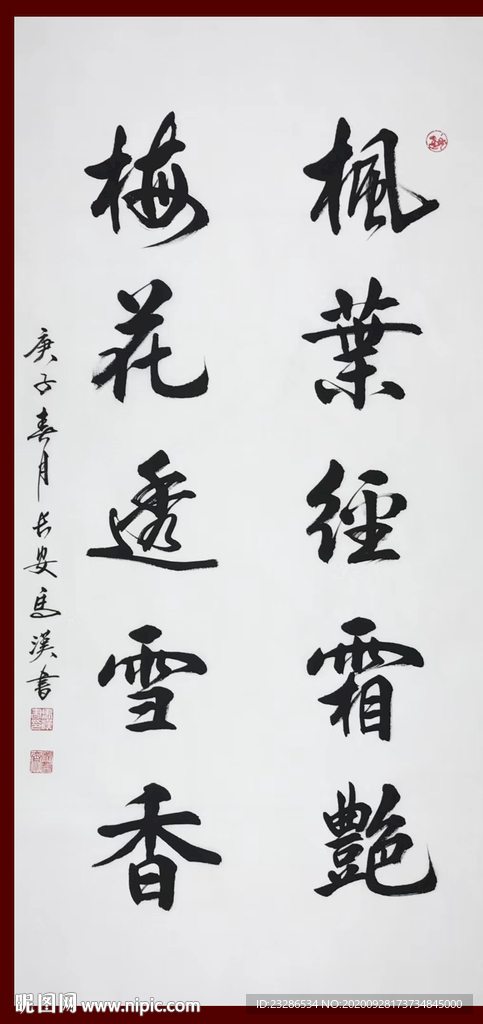 楓葉經霜艷
梅花透雪香
庚子春月長安馬漢書
昵图网 www.nipic.com
ID:23286534 NO:20200928173734845000